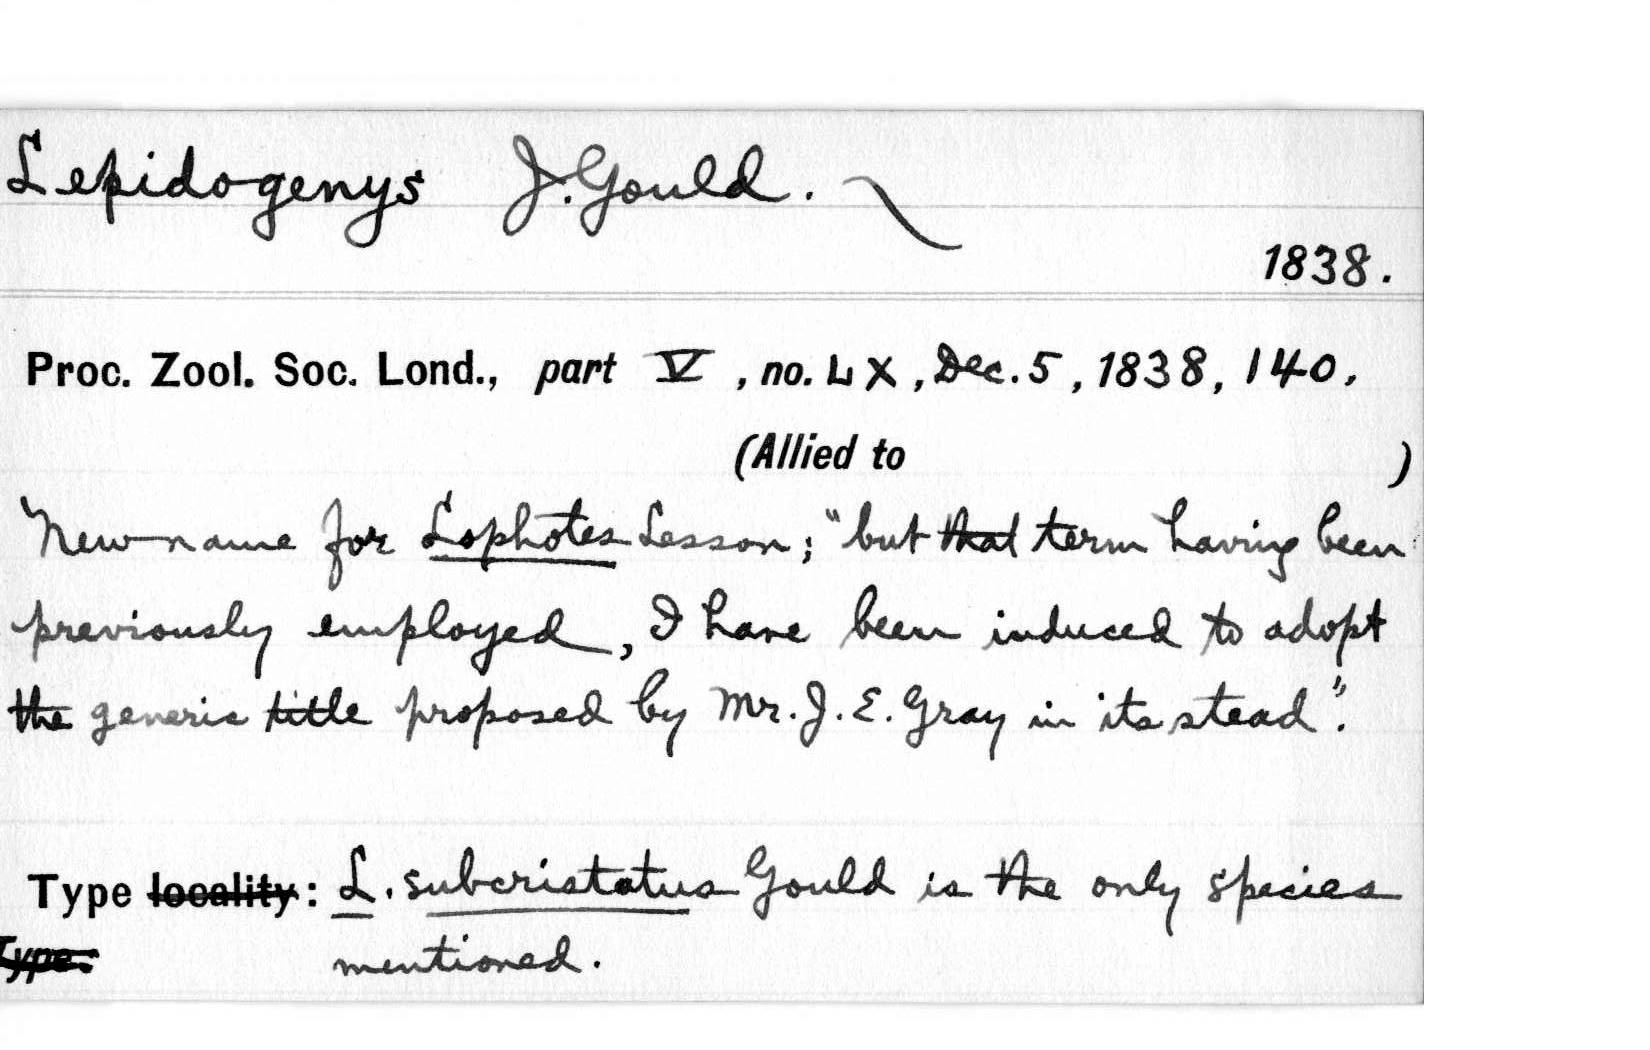 Lepidogenys J. Gould.
1838.
Proc. Zool. Soc. Lond., part V, no. LX, Dec. 5, 1838, 140.
(Allied to )
New name for Lophotes Lesson; "but that term having been
previously employed, I have been induced to adopt
the generic title proposed by Mr. J. E. Gray in its stead".
Type locality: L. subcristatus Gould is the only species
Type: mentioned.